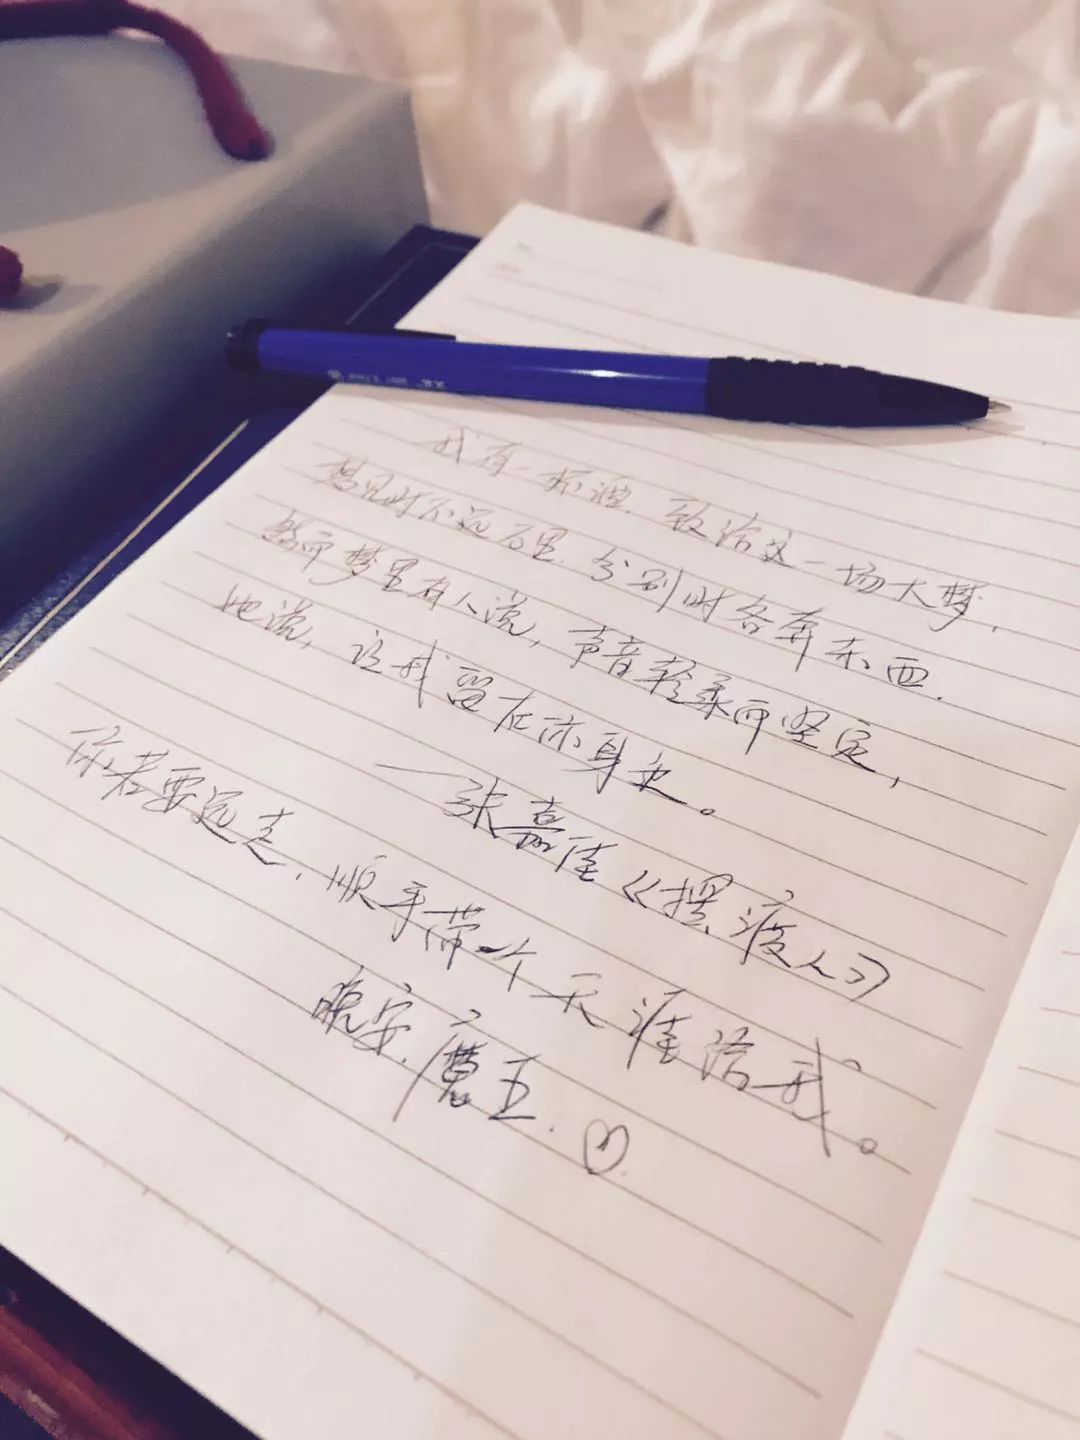 我有一杯酒，致给这一场大梦，
想见时不远万里，分别时各奔东西.
然而梦里有人说，声音轻柔而坚定，
她说，让我留在你身边。
——张嘉佳《摆渡人》
你若要远走，顺手带个天涯给我。
晚安.魔王.